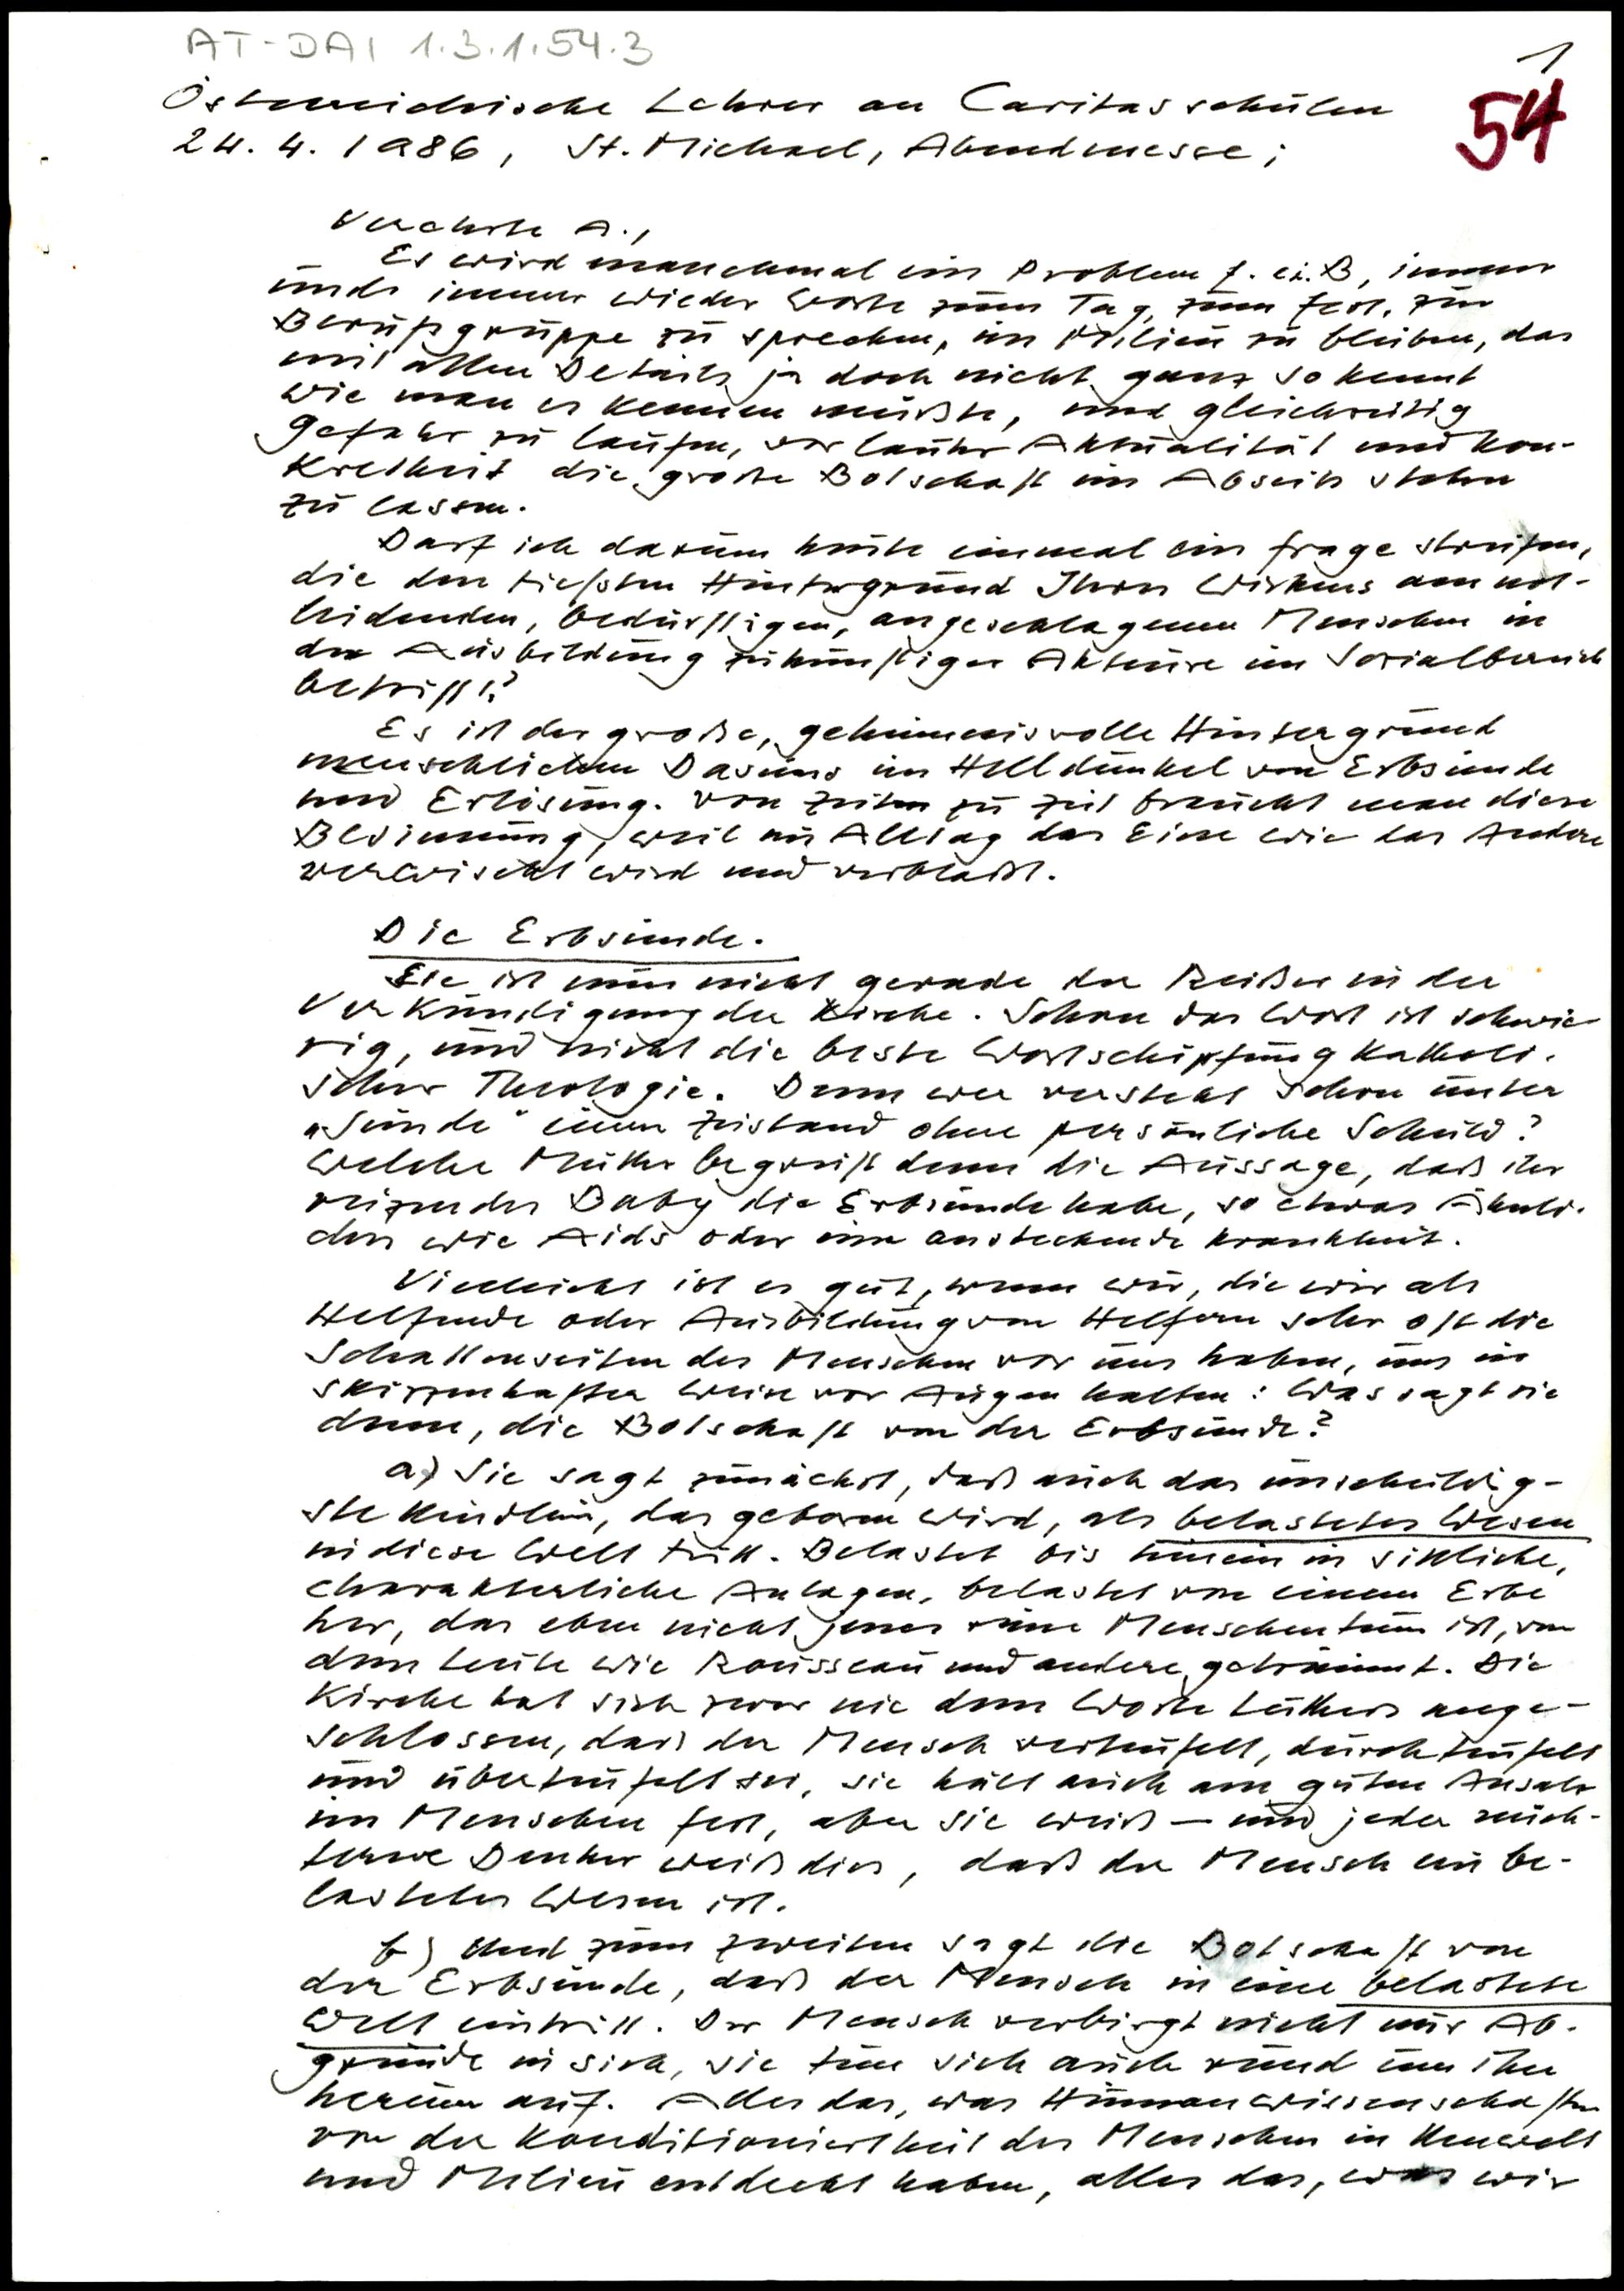 AT-DAI 1.3.1.54.3
1
54
Österreichische Lehrer an Caritasschulen
24. 4. 1986, St. Michael, Abendmesse;
Verehrte A.,
Es wird manchmal ein Problem f. ei. B, immer
und immer wieder Worte zum Tag, zum Fest, zur
Berufsgruppe zu sprechen, im Milieu zu bleiben, das
mit allen Details ja doch nicht ganz so kennt
wie man es kennen müßte, und gleichzeitig
Gefahr zu laufen, vor lauter Aktualität und Kon-
kretheit die große Botschaft im Abseits stehen
zu lassen.
Darf ich darum heute einmal ein Frage streifen,
die den tiefsten Hintergrund Ihres Wirkens am not-
leidenden, bedürftigen, angeschlagenen Menschen in
der Ausbildung zukünftiger Akteure im Sozialbereich
betrifft?
Es ist der große, geheimnisvolle Hintergrund
menschlichen Daseins im Helldunkel von Erbsünde
und Erlösung. Von Zeit zu Zeit braucht man diese
Besinnung, weil im Alltag das Eine wie das Andere
verwischt wird und verblaßt.
Die Erbsünde.
Sie ist nun nicht gerade der Reißer in der
Verkündigung der Kirche. Schon das Wort ist schwie
rig, und nicht die beste Wortschöpfung katholi-
scher Theologie. Denn wer versteht schon unter
„Sünde" einen Zustand ohne persönliche Schuld?
Welche Mutter begreift denn die Aussage, daß ihr
reizendes Baby die Erbsünde habe, so etwas Ähnli-
ches wie Aids oder eine ansteckende Krankheit.
Vielleicht ist es gut, wenn wir, die wir als
Helfende oder Ausbildung von Helfern sehr oft die
Schattenseiten des Menschen vor uns haben, uns in
skizzenhafter Weise vor Augen halten: Was sagt sie
denn, die Botschaft von der Erbsünde?
a) Sie sagt zunächst, daß auch das unschuldig-
ste Kindlein, das geboren wird, als belastetes Wesen
in diese Welt tritt. Belastet bis hinein in sittliche,
charakterliche Anlagen, belastet von einem Erbe
her, das eben nicht jenes reine Menschentum ist, von
dem Leute wie Rousseau und andere geträumt. Die
Kirche hat sich zwar nie dem Worte Luthers ange-
schlossen, daß der Mensch verteufelt, durchteufelt
und überteufelt sei, sie hält auch am guten Ansatz
im Menschen fest, aber sie weiß – und jeder nüch-
terne Denker weiß dies, daß der Mensch ein be-
lastetes Wesen ist.
b) Und zum zweiten sagt die Botschaft von
der Erbsünde, daß der Mensch in eine belastete
Welt eintritt. Der Mensch verbirgt nicht nur Ab-
gründe in sich, sie tun sich auch rund um ihn
herum auf. Alles das, was Humanwissenschaften
von der Konditioniertheit des Menschen in Umwelt
und Milieu entdeckt haben, alles das, was wir